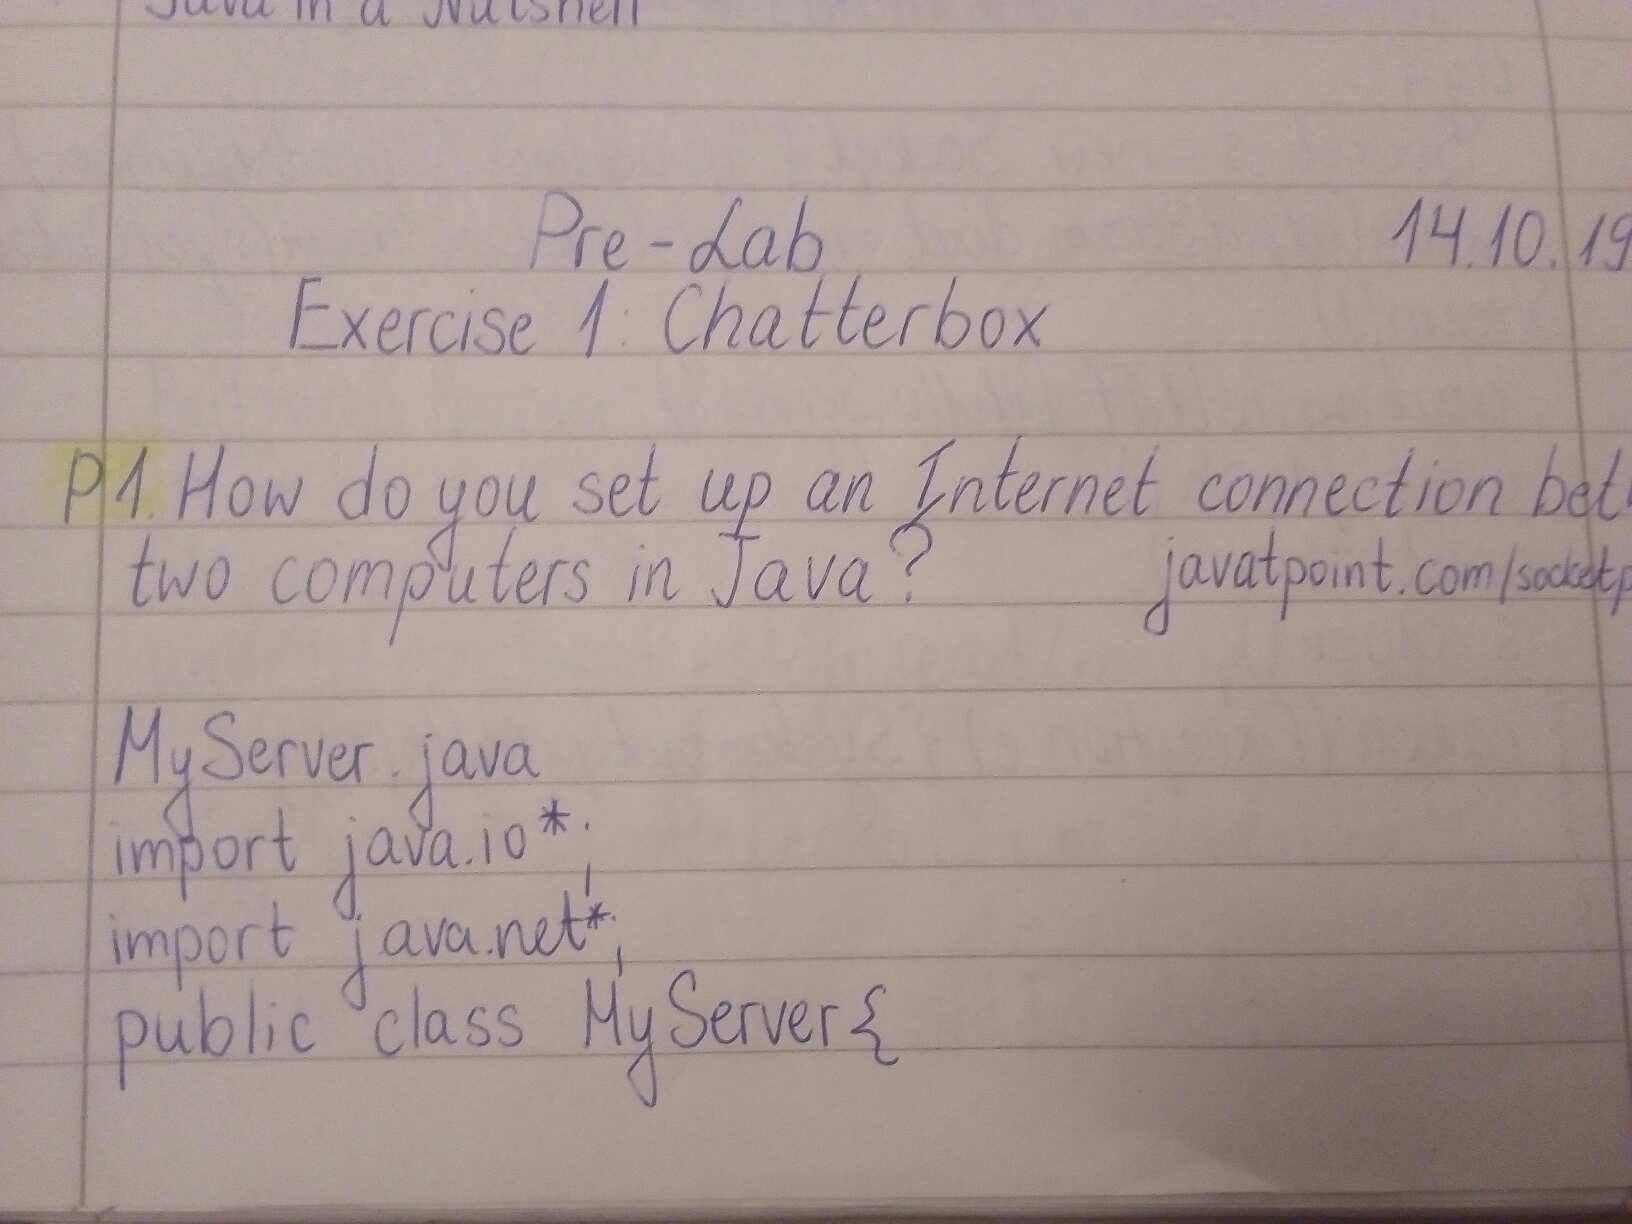 Java in a Nutshell
Pre-Lab 14.10.19
Exercise 1: Chatterbox
P1. How do you set up an Internet connection bet
two computers in Java? javatpoint.com/socketp
MyServer.java
import java.io*;
import java.net*;
public class MyServer{